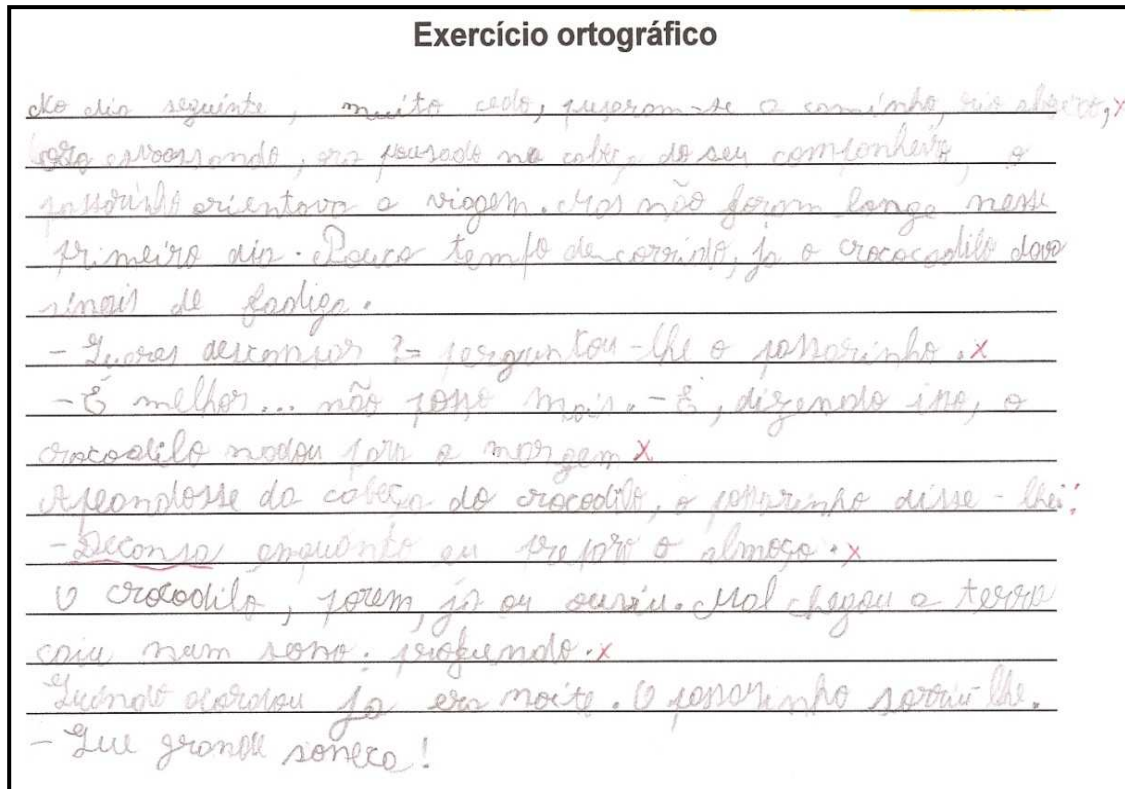 Exercício ortográfico
No dia seguinte, muito cedo, puseram-se a caminho, rio abaixo,
ora esvoassando, ora pousado na cabeça do seu companheiro, o
passarinho orientava a viagem. Mas não foram longe nesse
primeiro dia. Pouco tempo decorrido, ja o crococodilo dava
sinais de fadiga.
- Queres descansar ?- perguntou-lhe o passarinho.
- É melhor... não posso mais. - E, dizendo isso, o
crocodilo nadou para a margem
Apeandosse da cabeça do crocodilo, o passarinho disse-lhe:
- Decansa enquanto eu preparo o almoço.
O crocodilo, porem, já ou ouviu. Mal chegou a terra
caiu num sono. profundo.
Quando acordou ja era noite. O passarinho sorriu lhe.
- Que grande soneca!